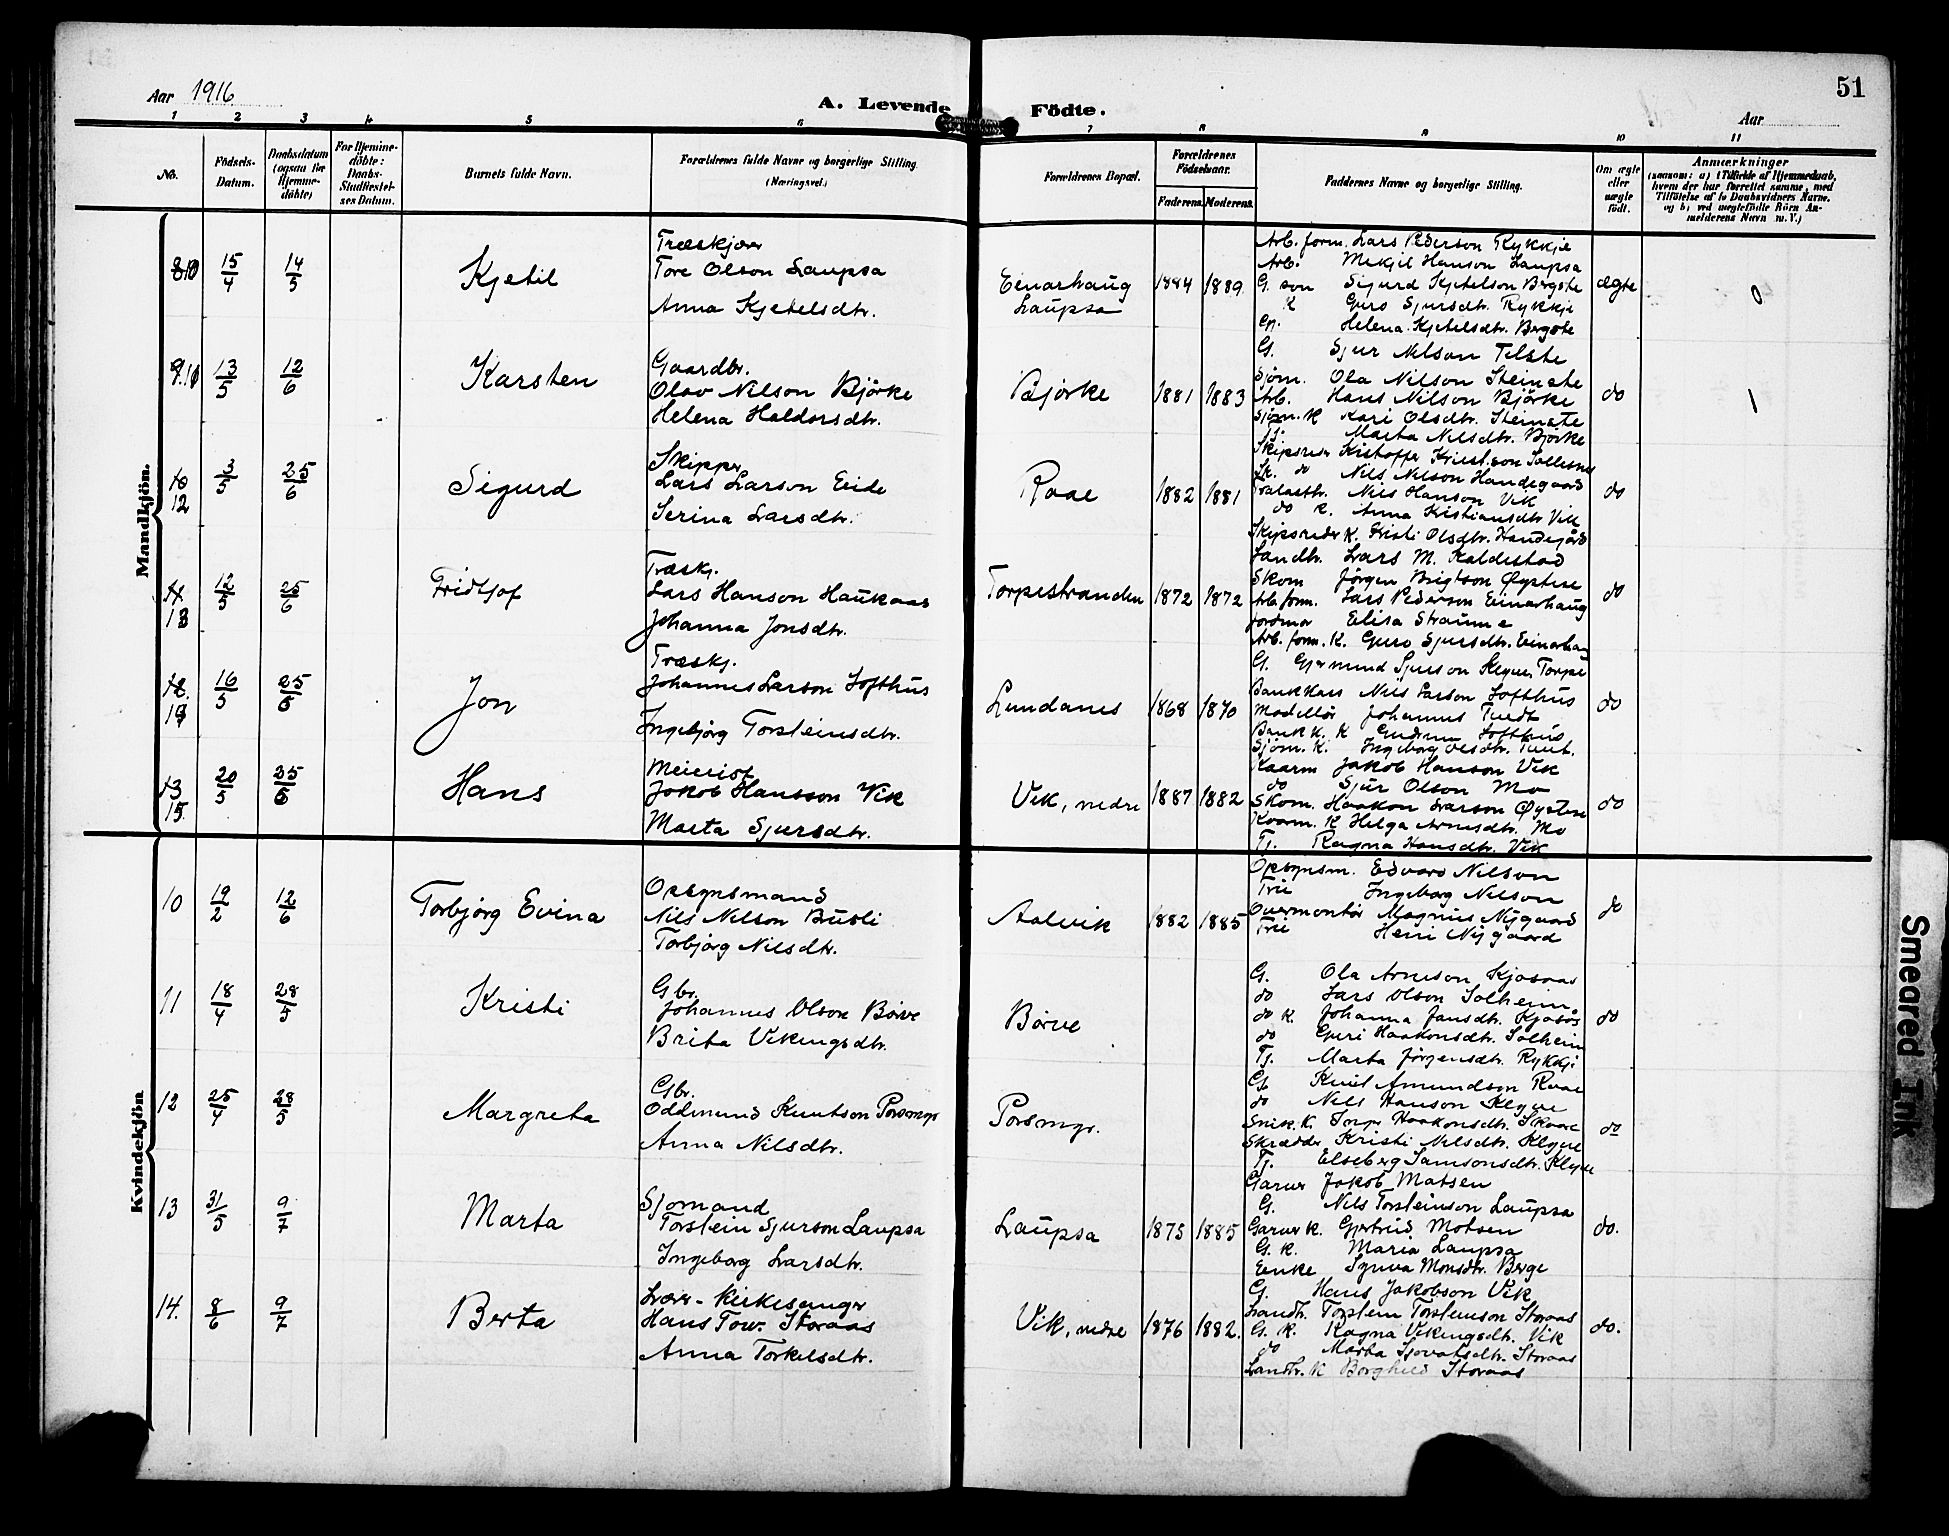 51
Aar 1916
A. Levende Födte.
Aar
1 2 3 4 5 6 7 8 9 10 11
No.
Födsels-Datum.
Daabsdatum (ogsaa for Hjemme-döbte)
For Hjemme-döbte: Daabs-Stadfæstel-ses Datum.
Barnets fulde Navn.
Forældrenes fulde Navne og borgerlige Stilling. (Næringsvei.)
Forældrenes Bopæl.
Forældrenes Födselsaar.
Faderens. Moderens.
Faddernes Navne og borgerlige Stilling.
Om ægte eller uægte født.
Anmærkninger
(saasom: a) i Tilfælde af Hjemmedaab,
hvem der har forrettet samme, med
Tilföielse af to Daabsvidners Navne,
og b) ved uægtefödte Börn An-
melderens Navn m. V.)
Mandkjön.
15/4 14/5 Kjetil
Træskjærer
Tore Olson Laupsa
Anna Kjetelsdtr.
Einarhaug
Laupsa
1884 1889
Arb. form. Lars Pederson Rykkje
Arb. Mikjel Hanson Laupsa
G. søn Sigurd Kjetelson Bergste
K Guro Sjursdtr. Rykkje
Helena Kjetelsdtr. Bergste
ægte
0
13/5 12/6 Karsten
Gaardbr.
Olav Nilson Björke
Helena Haldorsdtr.
Björke
1881 1883
G. Sjur Nilson Telste
Sjøm. Ola Nilson Steinste
Arb. Hans Nilson Björke
Sjøm. K Kari Olsdtr. Steinste
Tj. Marta Nilsdtr. Björke
do
1
10
12
3/5 25/6 Sigurd
Skipper
Lars Larson Eide
Serina Larsdtr.
Roae
1882 1881
Skipsreder Kristoffer Kristianson Sollesnes
Sk. do Nils Nilson Handegaard
Nils Hanson Vik
do K. Anna Kristiansdtr Vik
Skipsreder K. Kristi Olsdtr. Handegård
do
11
13
12/5 25/6 Fridtjof
Træskj.
Lars Hanson Haukaas
Johanna Jonsdtr.
Torpestranden
1872 1872
Landhr. Lars M. Kaldestad
Skom Jörgen Brigtson Øystese
Arb. form. Lars Pederson Einarhaug
Jordmor Elisa Straume
Arb. form. K. Guro Sjursdtr. Einarhaug
do
12
16/5 25/6 Jon
Træskj.
Johannes Larson Lofthus
Ingebjørg Torsteinsdtr.
Lundanes
1868 1870
G. Gjermund Sjurson Klyve, Torpe
Bankkass Nils Larson Lofthus
Modellør Johannes Tvedt
Bankk. K Gudrun Lofthus
Sjöm. K. Ingeborg Olsdtr. Tvedt.
do
13
15.
20/5 25/6 Hans
Meierist
Jakob Hansson Vik
Marta Sjursdtr.
Vik, nedre
1887 1882
Kaarm Jakob Hanson Vik
do Sjur Olson Mo
Skom. Haakon Larson Øystese
Kaarm. K Helga Arnesdtr. Mo
Tj. Ragna Hansdtr. Vik
do
Kvindekjön
10 19/2 12/6 Torbjörg Evina
Opsynsmand
Nils Nilson Busli
Torbjörg Nilsdtr.
Aalvik
1882 1885
Opsynsm. Edvard Nilson
Frue Ingeborg Nilson
Overmontør Magnus Nygaard
Frue Henni Nygaard
do
11 18/4 28/5 Kristi
Gbr.
Johannes Olson Börve
Brita Vikingsdtr.
Börve
G. Ola Arneson Kjosaas
do Lars Olson Solheim
do K. Johanna Jansdtr. Kjosås
do Guri Haakonsdtr. Solheim
Tj. Marta Jörgensdtr. Rykkje
do
12 25/4 28/5 Margreta
Gbr.
Oddmund Knutson Porsmyr
Anna Nilsdtr.
Porsmyr.
G. Knut Amundson Roae
do Nils Hanson Klyve
Snik. K. Inga Haakonsdtr. Skaare
Skrædder Kristi Nilsdtr. Klyve
Tj. Elseberg Samsonsdtr. Klyve
do
13 31/5 9/7 Marta
Sjömand
Torstein Sjurson Laupsa
Ingeborg Larsdtr.
Laupsa
1875 1885
Garver Jakob Matsen
G. Nils Torsteinson Laupsa
Garver K. Gjertrud Matsen
G. K. Maria Laupsa
Enke Synva Monsdtr. Berge
do.
14. 8/6 9/7 Berta
Lærer - Kirkesanger
Hans Tow. Storaas
Anna Torkelsdtr.
Vik, nedre
1876 1882.
G. Hans Jakobson Vik
Landhr. Torstein Torsteinson Storaas
G. K. Ragna Vikingsdtr. Vik
do Marta Sjovatsdtr. Storaas
Landhr. K Borghild Storaas
do.
Smeared Ink